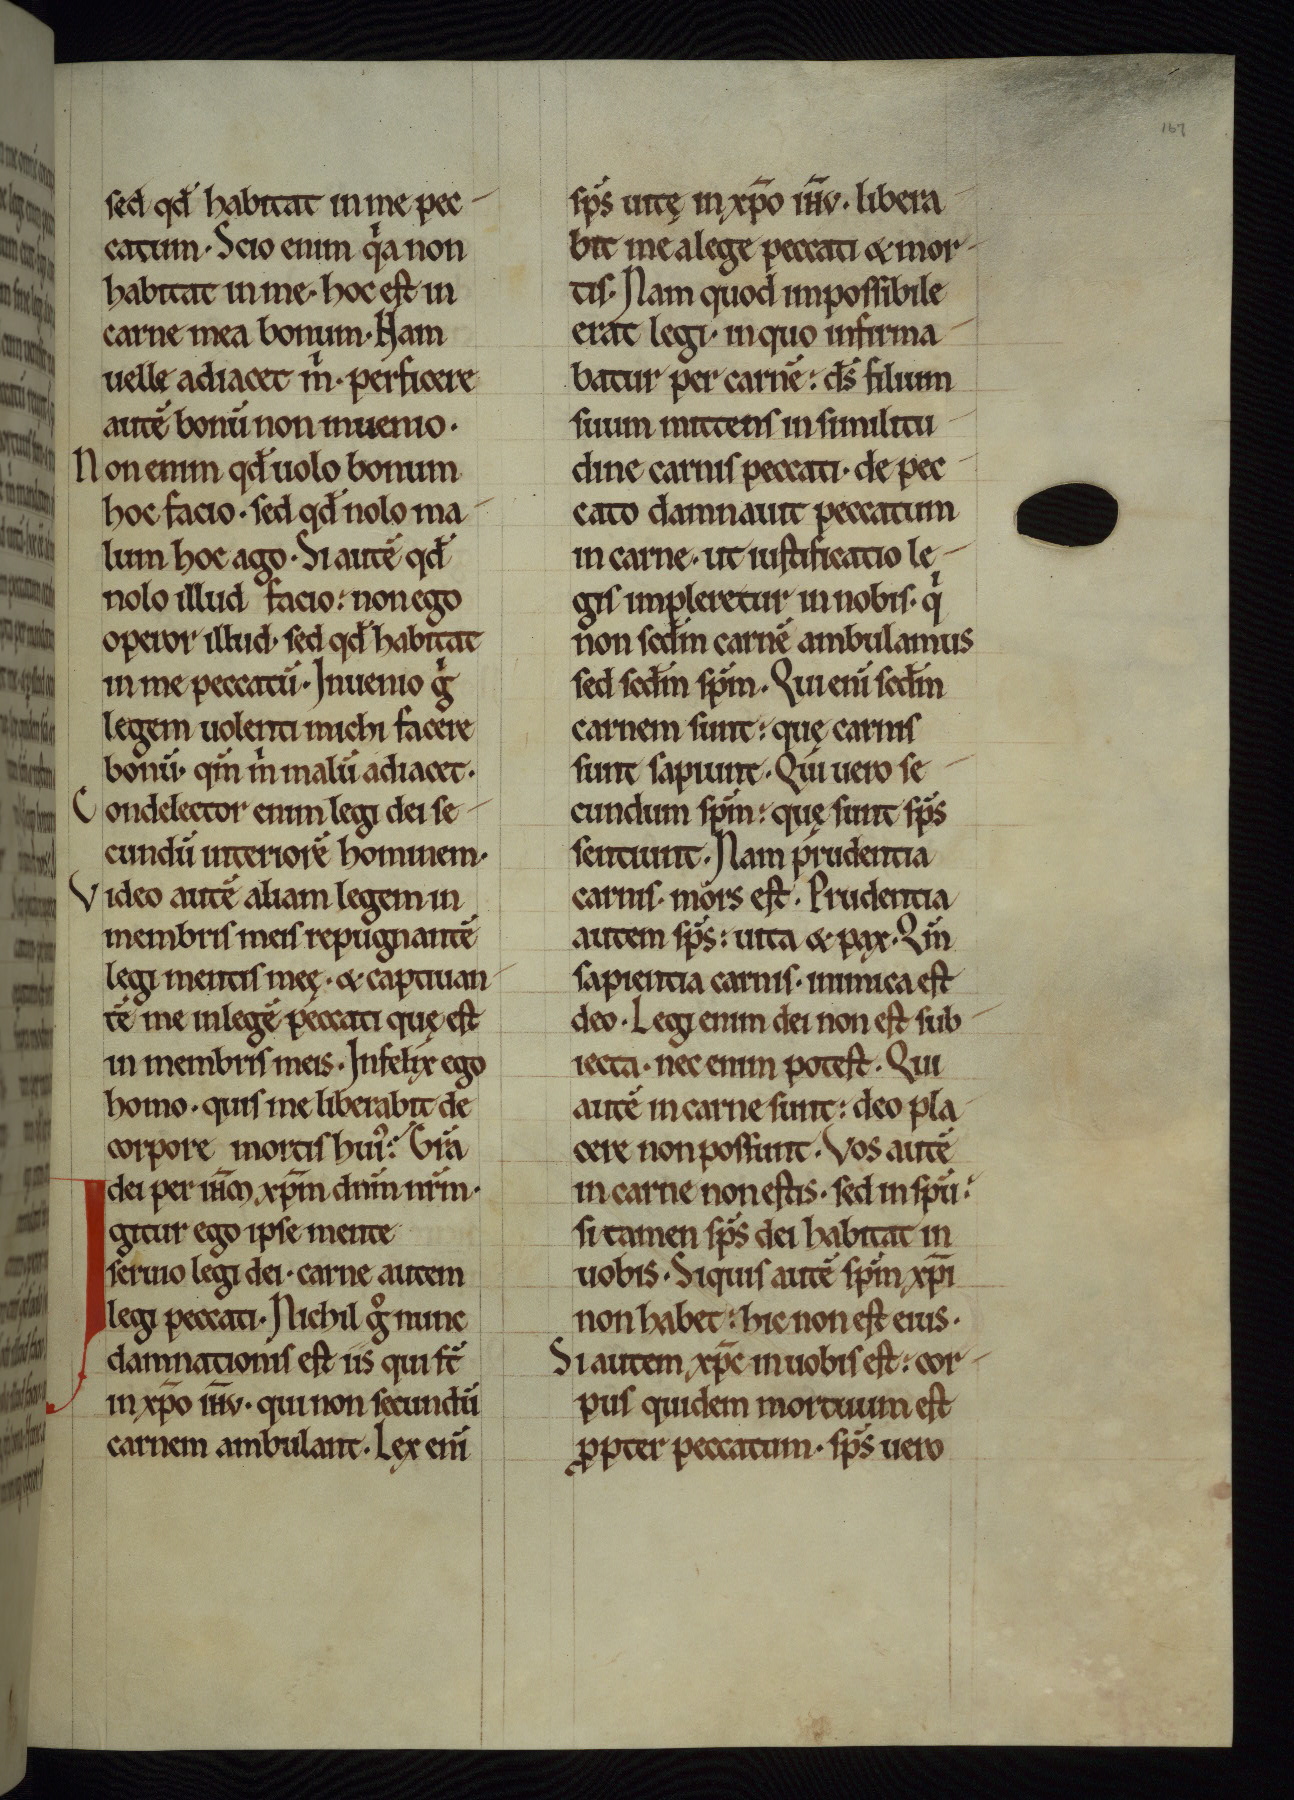 167
sed qd̄ habitat in me pec-
catum. Scio enim qͥa non
habitat in me. hoc est in
carne mea bonum. Nam
uelle adiacet m̄ͥ. perficere
autē bonū non inuenio.
Non enim qd̄ uolo bonum
hoc facio. sed qd̄ nolo ma-
lum hoc ago. Si autē qd̄
nolo illud facio: non ego
operor illud. sed qd̄ habitat
in me peccatū. Inuenio gͥ
legem uolenti michi facere
bonū. qm̄ m̄ͥ malū adiacet.
Condelector enim legi dei se-
cundū interiorē hominem.
Video autē aliam legem in
membris meis repugnantē
legi mentis meę. & captiuan-
tē me in legē peccati quę est
in membris meis. Infelix ego
homo. quis me liberabit de
corpore mortis huiꝰ: Gr̄a
dei per ih̄m xp̄m dn̄m nr̄m.
Igitur ego ipse mente
seruio legi dei. carne autem
legi peccati. Nichil gͦ nunc
damnationis est iis qui st̄
in xp̄o ih̄u. qui non secundū
carnem ambulant. Lex eni̅
sp̄s uitę in xp̄o ih̄u. libera-
bit me a lege peccati & mor-
tis. Nam quod impossibile
erat legi. in quo infirma-
batur per carnē: ds̄ filium
suum mittens in similitu-
dine carnis peccati. de pec-
cato damnauit peccatum
in carne. ut iustificatio le-
gis impleretur in nobis. qͥ
non scd̄m carnē ambulamus
sed scd̄m sp̄m. Qui eni̅ scd̄m
carnem sunt: quę carnis
sunt sapiunt. Qui uero se-
cundum sp̄m: quę sunt sp̄s
sentiunt. Nam prudentia
carnis. mors est. Prudentia
autem sp̄s: uita & pax. Qm̄
sapientia carnis. inimica est
deo. Legi enim dei non est sub-
iecta. nec enim potest. Qui
autē in carne sunt: deo pla-
cere non possunt. Vos autē
in carne non estis. sed in sp̄u:
si tamen sp̄s dei habitat in
uobis. Siquis autē sp̄m xp̄i
non habet: hic non est eius.
Si autem xp̄c in uobis est: cor-
pus quidem mortuum est
ꝓpter peccatum. sp̄s uero